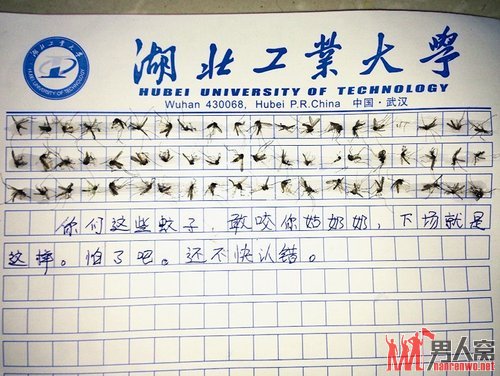 湖北工業大學
HUBEI UNIVERSITY OF TECHNOLOGY
Wuhan 430068, Hubei P.R.China 中国·武汉
你们这些蚊子，敢咬你姑奶奶，下场就是
这样。怕了吧。还不快认错。
男人窝
nanrenwo.net